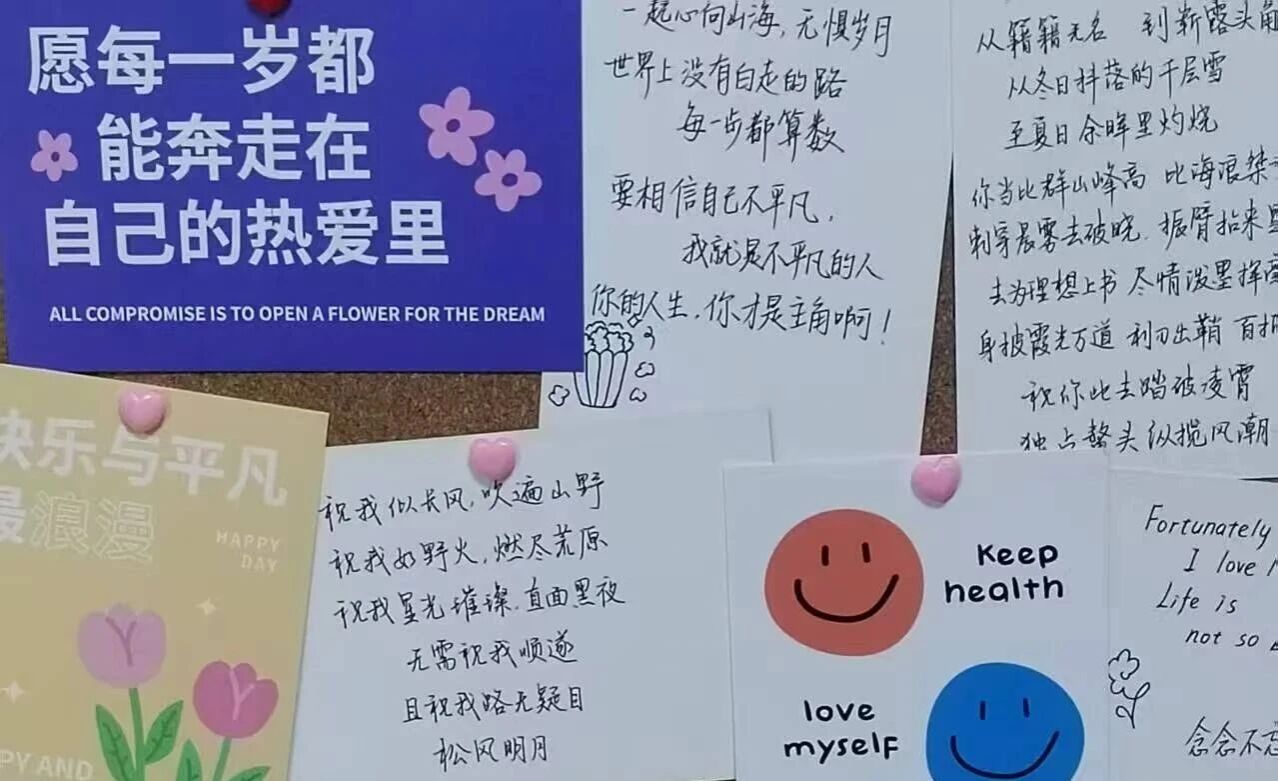 愿每一岁都
能奔走在
自己的热爱里
ALL COMPROMISE IS TO OPEN A FLOWER FOR THE DREAM
一起心向山海，无惧岁月
世界上没有白走的路
每一步都算数
要相信自己不平凡，
我就是不平凡的人
你的人生，你才是主角啊！
从籍籍无名 到崭露头角
从冬日抖落的千层雪
至夏日余晖里灼烧
你当比群山峰高 比海浪桀
刺穿晨雾去破晓，振臂抬来
去为理想上书 尽情泼墨挥
身披霞光万道 利刃出鞘 百
祝你此去踏破凌霄
独占鳌头纵揽风潮
快乐与平凡
最浪漫
HAPPY
DAY
PY AND
祝我似长风，吹遍山野
祝我如野火，燃尽荒原
祝我星光璀璨，直面黑夜
无需祝我顺遂
且祝我路无疑目
松风明月
Keep
health
love
myself
Fortunately
I love
Life is
not so
念念不忘